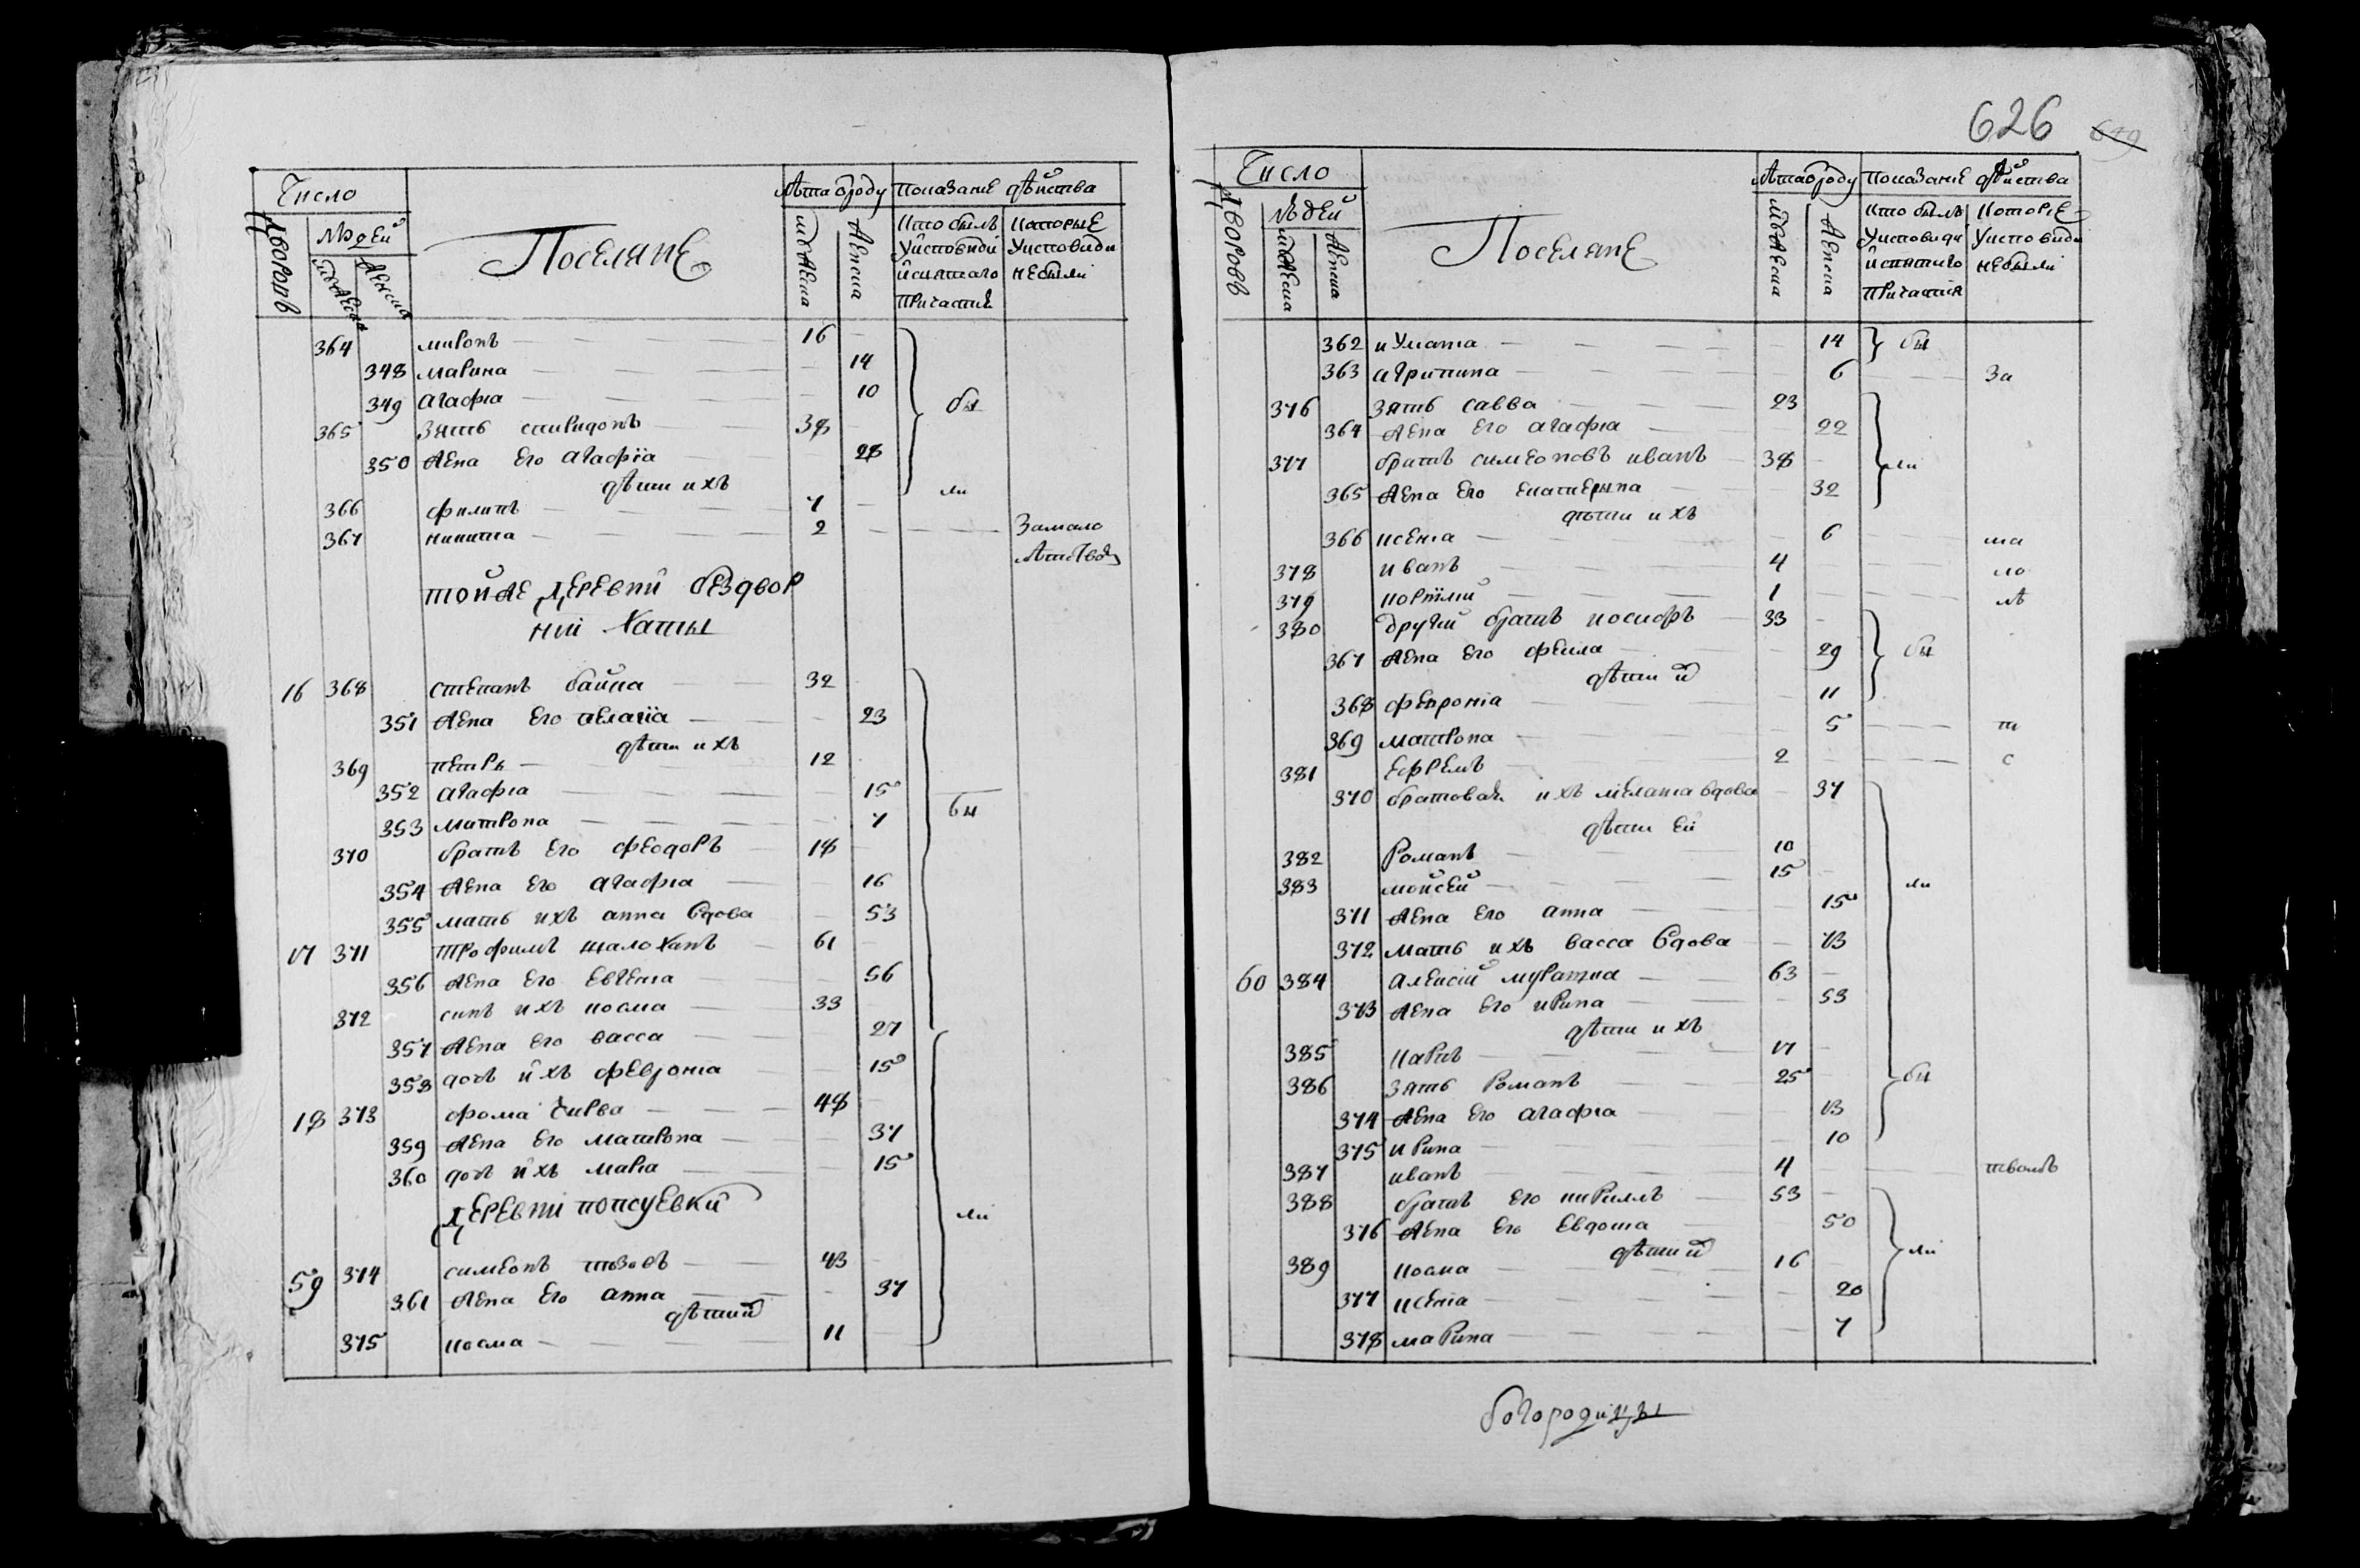 Число
Дворовъ
людей
мужеска
женска
Поселянѣ
лѣта ѿроду
мужеска
женска
показанiе дѣйства
кто былъ у исповѣди и святаго причастия
которые у исповѣди не были
364 миронъ 16
348 марина 14
349 агафиа 10 бы
365 зять спиридонъ 38
350 жена его агафiа 28
дѣти ихъ ли
366 филипъ 7
367 никита 2 замало
лѣтством
той же деревни бездвор
нiи хаты
16 368 степанъ байка 32
351 жена его пелагiа 23
дѣти ихъ
369 петръ 12
352 агафиа 15
353 матрона 7 бы
370 братъ его феодоръ 18
354 жена его агафиа 16
355 мать ихъ анна вдова 53
17 371 трофимъ шалоханъ 61
356 жена его евгениа 56
372 синъ ихъ косма 33
357 жена его васса 27
358 дочъ ихъ феврониа 15
18 373 фома 48
359 жена его матрона 37
360 дочъ ихъ мариа 15
деревни попсуевки ли
59 374 симеонъ 43
361 жена его анна 37
дѣти их
375 косма 11
626
649
Число
Дворовъ
людей
мужеска
женска
Поселянѣ
лѣта ѿроду
мужеска
женска
показанiе дѣйства
кто былъ у исповѣди и святиго причастiя
которiе у исповѣди не были
362 иулита 14 бы
363 агрипина 6 за
376 зять савва 23
364 жена его агафиа 22
377 братъ симеоновъ иванъ 38 ли
365 жена его екатерына 32
дѣти ихъ
366 ксениа 6 ма
378 иванъ 4 ло
379 1 лѣ
380 другiй братъ иосифъ 33
367 жена его фекла 29 бы
дѣти их
368 феврониа 11
369 матрона 5 т
381 ефремъ 2 с
370 братовая ихъ мелания вдова 37
дѣти ей
382 романъ 10
383 мойсей 15 ли
371 жена его анна 15
372 мать ихъ васса вдова 73
60 384 алексiй 63
373 жена его ирина 53
дѣти ихъ
385 карпъ 17
386 зять романъ 25 бы
374 жена его агафиа 13
375 ирина 10
387 иванъ 4 твомъ
388 братъ его кириллъ 53
376 жена его евдокиа 50
дѣти их ли
389 косма 16
377 ксениа 20
378 марина 7
богородицы